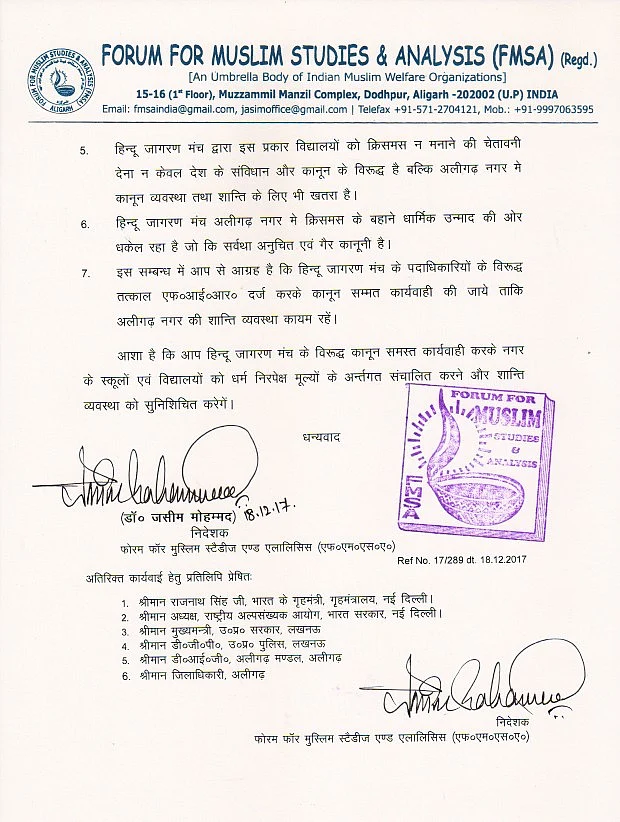 FORUM FOR MUSLIM STUDIES & ANALYSIS (FMSA) (Regd.)
[An Umbrella Body of Indian Muslim Welfare Organizations]
15-16 (1st Floor), Muzzammil Manzil Complex, Dodhpur, Aligarh -202002 (U.P) INDIA
Email: fmsaindia@gmail.com, jasimoffice@gmail.com | Telefax +91-571-2704121, Mob.: +91-9997063595
FORUM FOR MUSLIM STUDIES & ANALYSIS (FMSA)
ALIGARH
5. हिन्दू जागरण मंच द्वारा इस प्रकार विद्यालयों को क्रिसमस न मनाने की चेतावनी
देना न केवल देश के संविधान और कानून के विरूद्ध है बल्कि अलीगढ़ नगर मे
कानून व्यवस्था तथा शान्ति के लिए भी खतरा है।
6. हिन्दू जागरण मंच अलीगढ़ नगर मे क्रिसमस के बहाने धार्मिक उन्माद की ओर
धकेल रहा है जो कि सर्वथा अनुचित एवं गैर कानूनी है।
7. इस सम्बन्ध में आप से आग्रह है कि हिन्दू जागरण मंच के पदाधिकारियों के विरूद्ध
तत्काल एफ०आई०आर० दर्ज करके कानून सम्मत कार्यवाही की जाये ताकि
अलीगढ़ नगर की शान्ति व्यवस्था कायम रहें।
आशा है कि आप हिन्दू जागरण मंच के विरूद्ध कानून समस्त कार्यवाही करके नगर
के स्कूलों एवं विद्यालयों को धर्म निरपेक्ष मूल्यों के अर्न्तगत संचालित करने और शान्ति
व्यवस्था को सुनिशिचित करेगें।
धन्यवाद
FORUM FOR
MUSLIM
STUDIES
&
ANALYSIS
FMSA
(डॉ० जसीम मोहम्मद) 18.12.17.
निदेशक
फोरम फॉर मुस्लिम स्टैडीज एण्ड एलालिसिस (एफ०एम०एस०ए०)
Ref No. 17/289 dt. 18.12.2017
अतिरिक्त कार्यवाई हेतु प्रतिलिपि प्रेषितः
1. श्रीमान राजनाथ सिंह जी, भारत के गृहमंत्री, गृहमंत्रालय, नई दिल्ली।
2. श्रीमान अध्यक्ष, राष्ट्रीय अल्पसंख्यक आयोग, भारत सरकार, नई दिल्ली।
3. श्रीमान मुख्यमन्त्री, उ०प्र० सरकार, लखनऊ
4. श्रीमान डी०जी०पी०, उ०प्र० पुलिस, लखनऊ
5. श्रीमान डी०आई०जी०, अलीगढ़ मण्डल, अलीगढ़
6. श्रीमान जिलाधिकारी, अलीगढ़
निदेशक
फोरम फॉर मुस्लिम स्टैडीज एण्ड एलालिसिस (एफ०एम०एस०ए०)